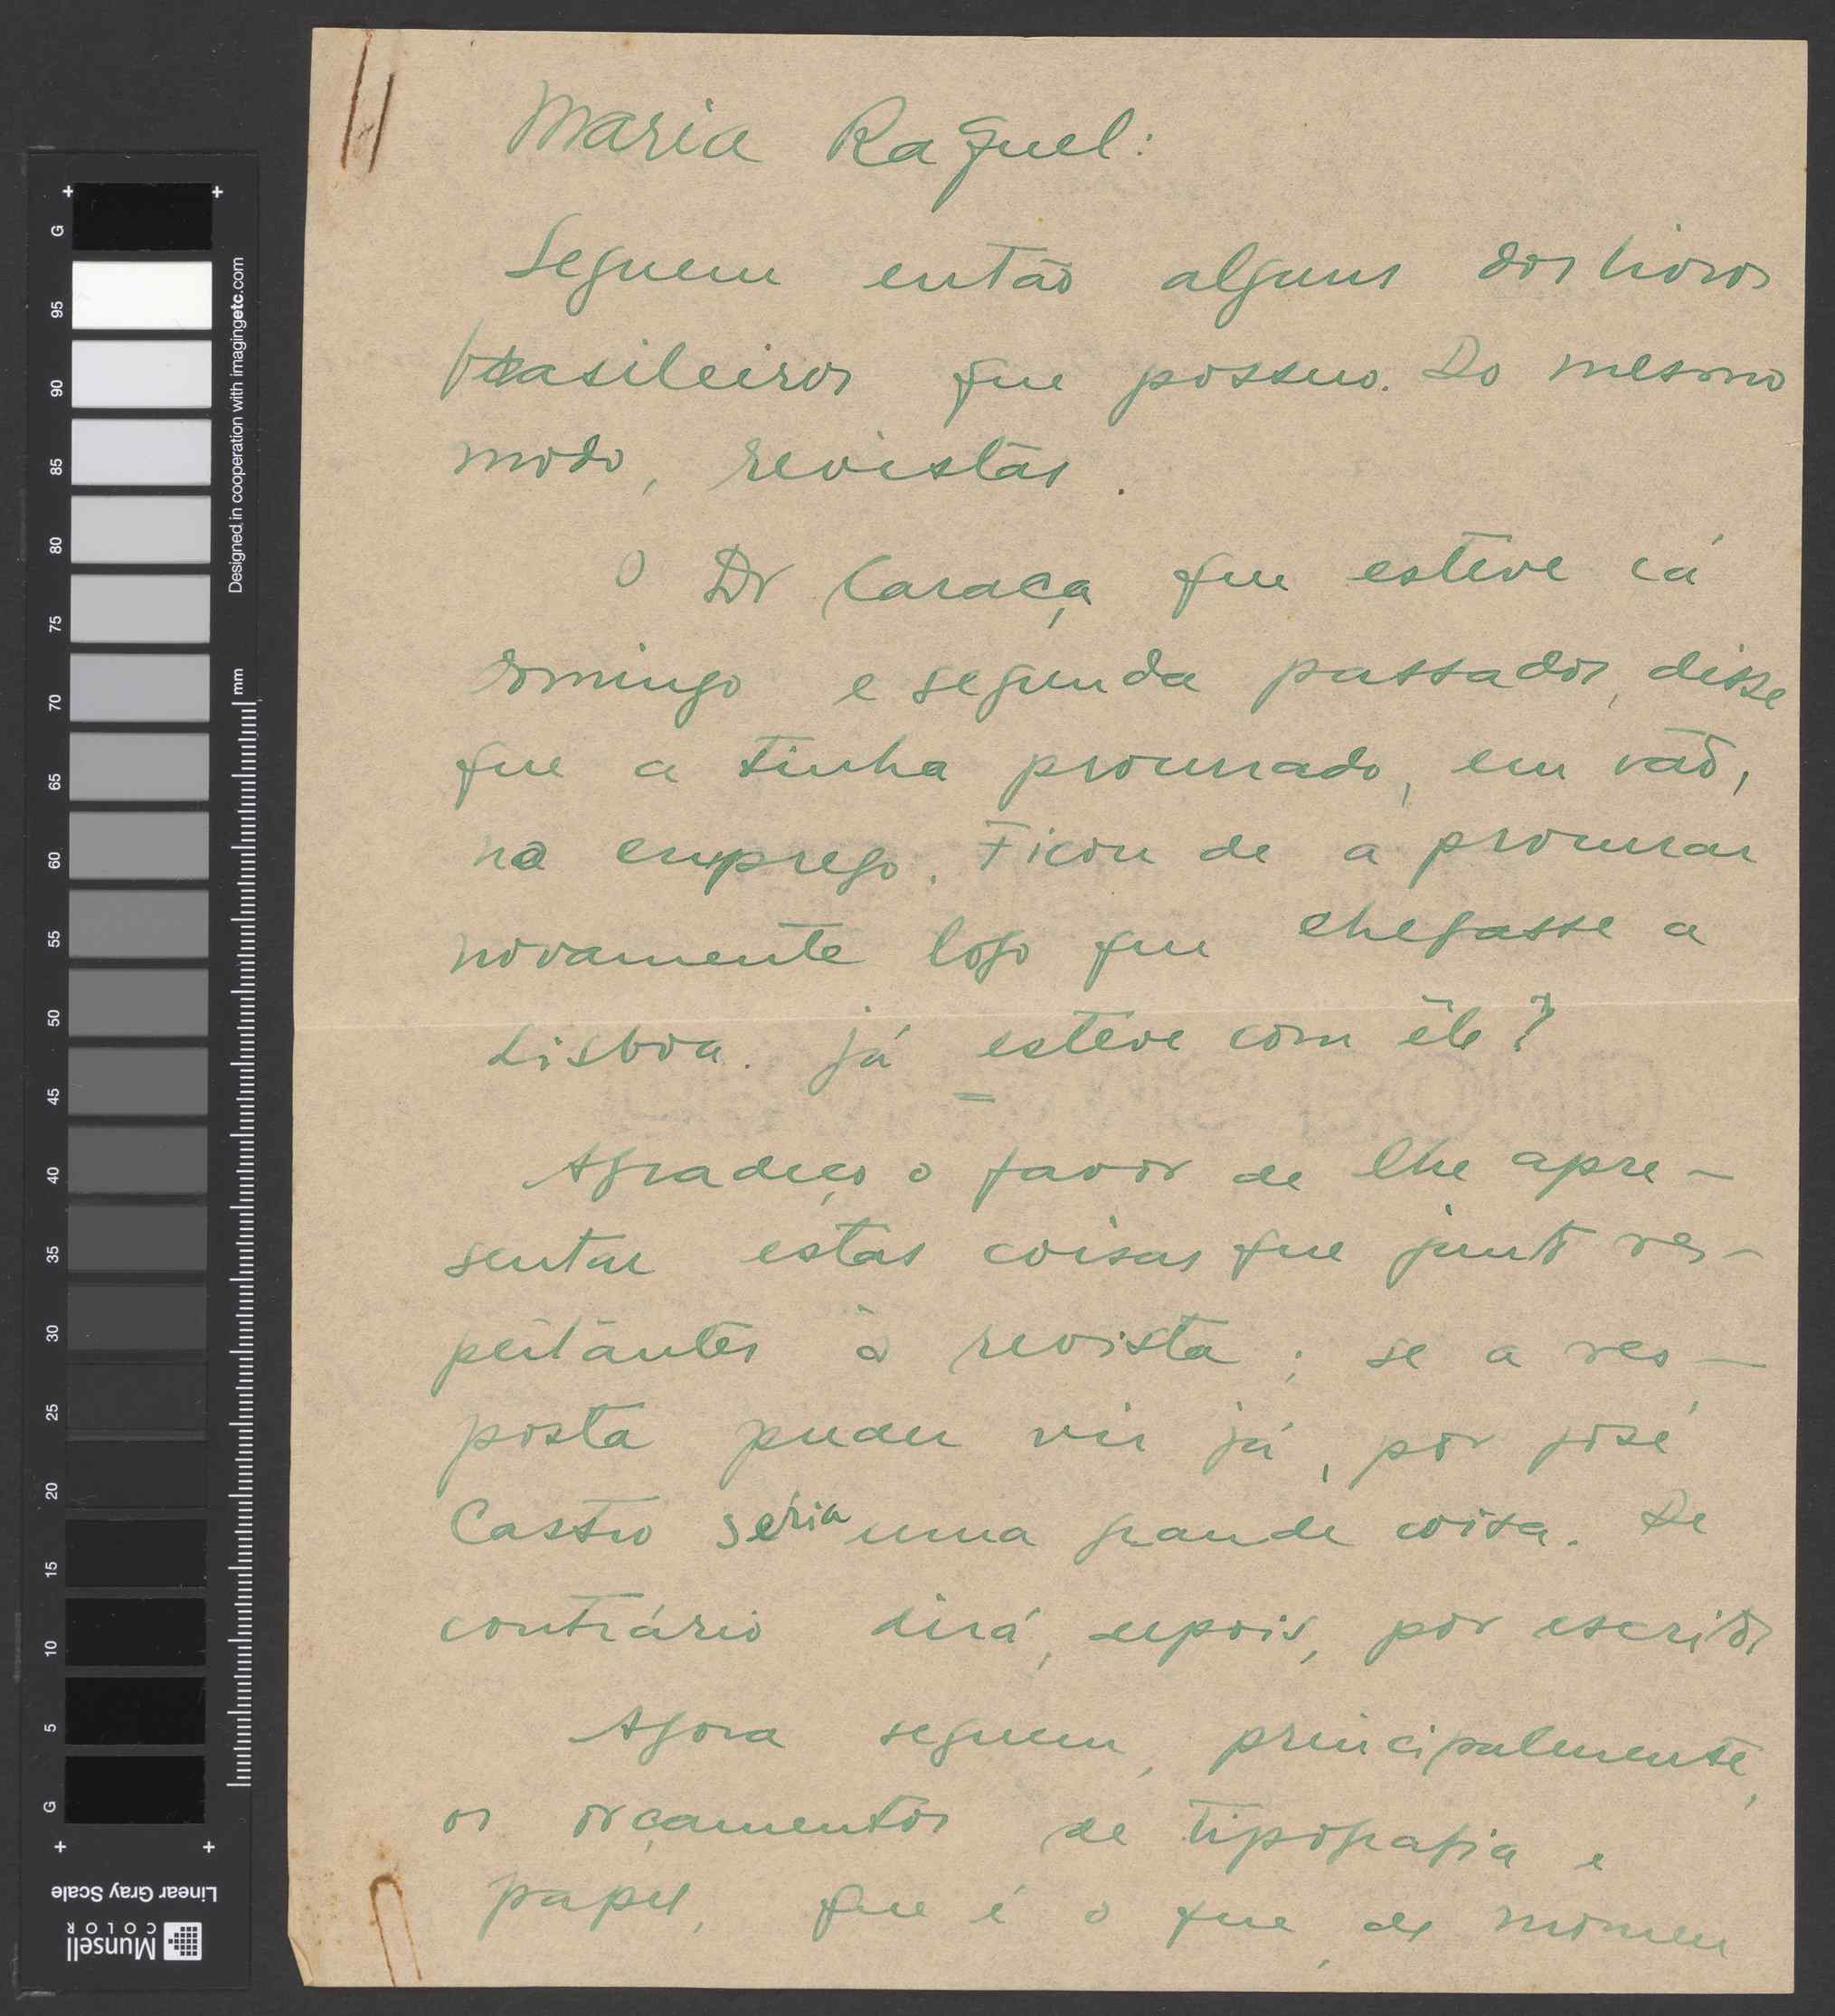 Maria Raquel:
Seguem então alguns dos livros
brasileiros que possuo. Do mesmo
modo, revistas.
O Dr Caraça que esteve cá
domingo e segunda passados, disse
que a tinha procurado, em vão,
no emprego. Ficou de a procurar
novamente logo que chegasse a
Lisboa. Já esteve com êle?
Agradeço o favor de lhe apre-
sentar estas coisas que junto res-
peitantes à revista; se a res-
posta puder vir já, por José
Castro seria uma grande coisa. De
contrário dirá, depois, por escrito
Agora seguem, principalmente,
os orçamentos de tipografia e
papel, que é o que, de momen
G
95
90
85
80
75
70
65
60
55
50
45
40
35
30
25
20
15
10
5
G
mm
Designed in cooperation with imagingetc.com
Linear Gray Scale
Munsell
COLOR